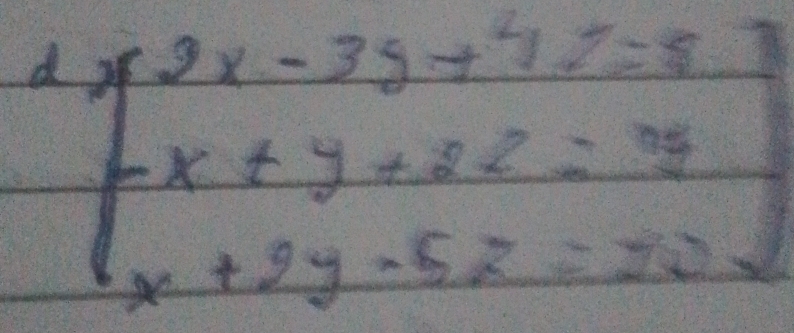 d) 2x - 3y + 4z = 8
-x + y + 2z =
x + 2y - 5z =